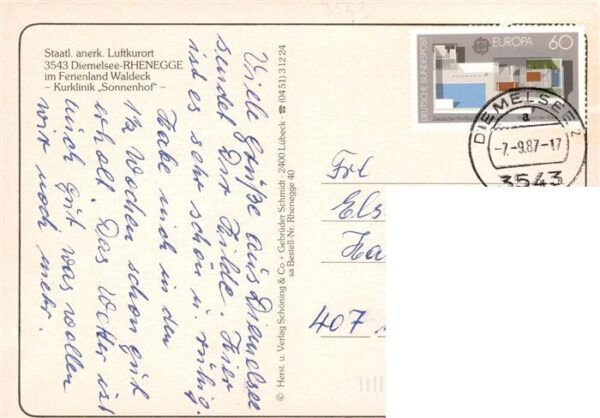 3543
Staatl. anerk. Luftkurort
3543 Diemelsee-RHENEGGE
im Ferienland Waldeck
– Kurklinik „Sonnenhof“ –
Viele Grüße aus Diemelsee
sendet Dir Hilde. Hier
ist es sehr schön u. ruhig.
Habe mich in den
1½ Wochen schon gut
erholt. Das Wetter ist
auch gut was wollen
wir noch mehr.
© Herst. u. Verlag Schöning & Co + Gebrüder Schmidt · 2400 Lübeck · ☎ (04 51) 3 12 24
sa Bestell-Nr. Rhenegge 40
DEUTSCHE BUNDESPOST
EUROPA 60
Deutscher Pavillon
DIEMELSEE 2
a
-7.-9.87-17
3543
Frl
Els
Ha
407